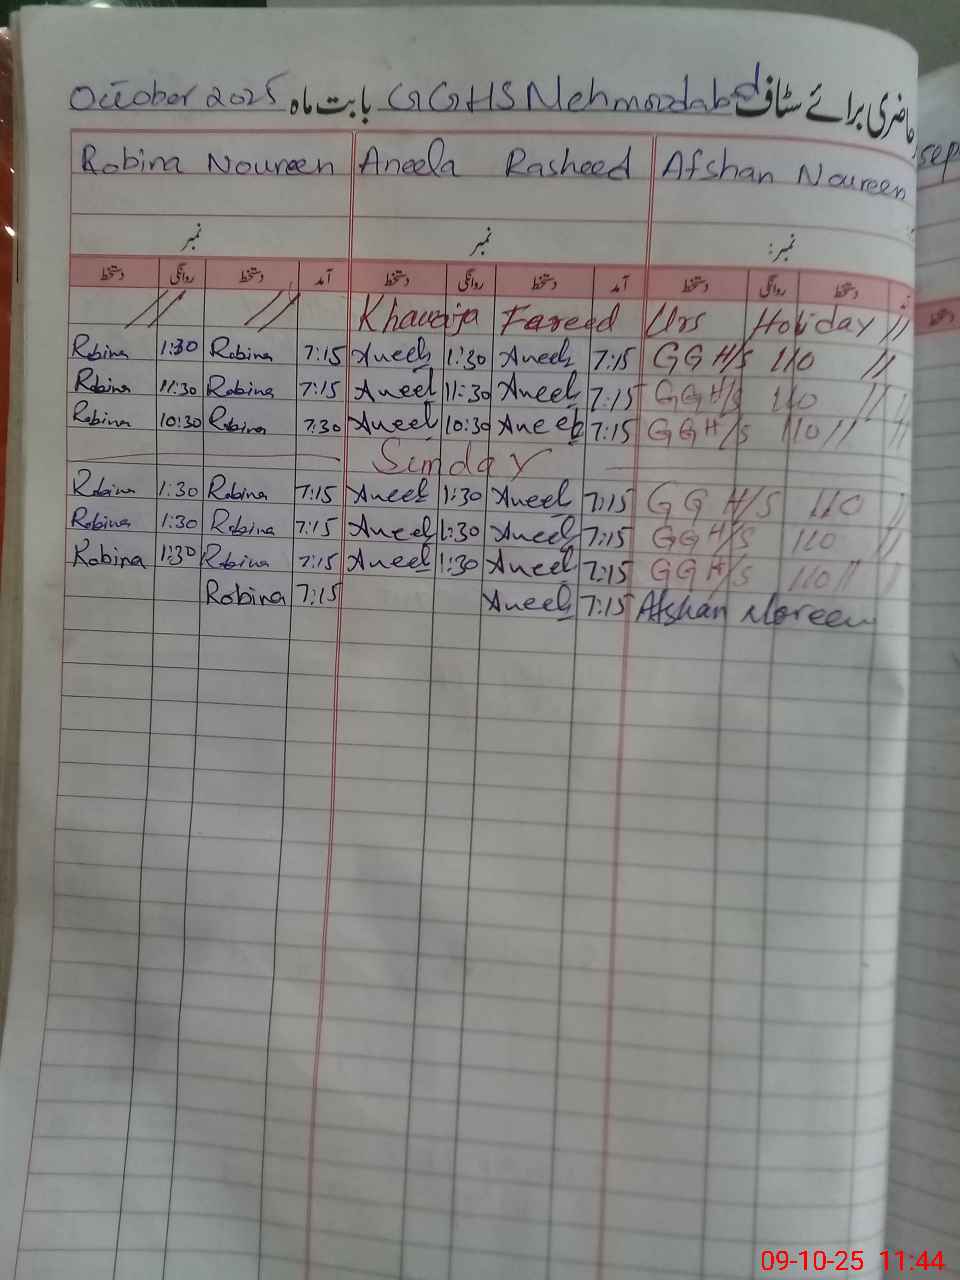 October 2025 بابت ماہ GGHS Mehmoodabad حاضری برائے سٹاف
sep
Robina Noureen Aneela Rasheed Afshan Noureen
نمبر نمبر نمبر:
دستخط روانگی دستخط آمد دستخط روانگی دستخط آمد دستخط روانگی دستخط
// // Khawaja Fareed Urs Holiday //
Robina 1:30 Robina 7:15 Aneela 1:30 Aneela 7:15 GGH/S 110 //
Robina 11:30 Robina 7:15 Aneel 11:30 Aneel 7:15 GGH/S 110 //
Robina 10:30 Robina 7:30 Aneel 10:30 Aneela 7:15 GGH/S 110 // //
Sunday
Robina 1:30 Robina 7:15 Aneel 1:30 Aneel 7:15 GGH/S 110 /
Robina 1:30 Robina 7:15 Aneel 1:30 Aneel 7:15 GGH/S 110 //
Robina 1:30 Robina 7:15 Aneel 1:30 Aneel 7:15 GGH/S 110 // /
Robina 7:15 Aneela 7:15 Afshan Noreen
09-10-25 11:44